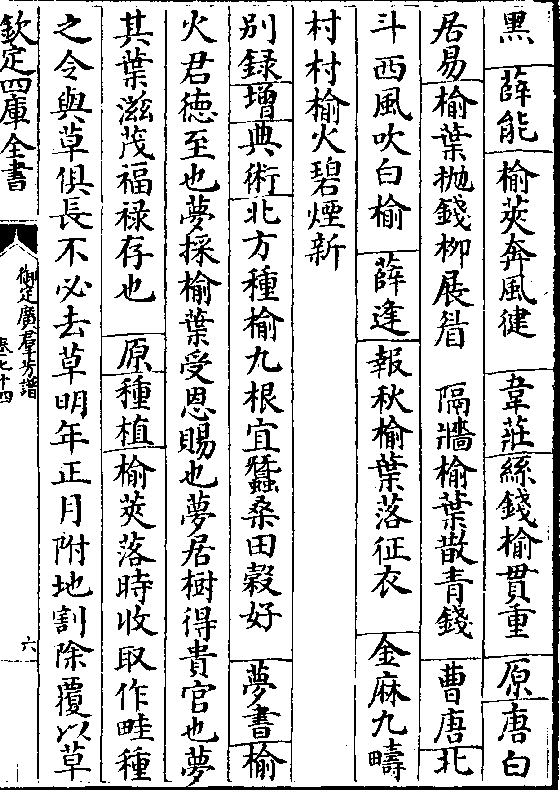 黑　薛能　榆莢奔風健　韋莊　絲錢榆貫重　原　唐白
居易　榆葉拋錢柳展眉　隔牆榆葉散青錢　曹唐　北
斗西風吹白榆　薛逢　報秋榆葉落征衣　金麻九疇
村村榆火碧煙新
別錄　增　典術　北方種榆九根宜蠶桑田穀好　夢書　榆
火君德至也夢採榆葉受恩賜也夢居樹得貴官也夢
其葉滋茂福祿存也　原　種植　榆莢落時收取作畦種
之令與草俱長不必去草明年正月附地割除覆以草
欽定四庫全書
御定廣群芳譜
卷七十四
六